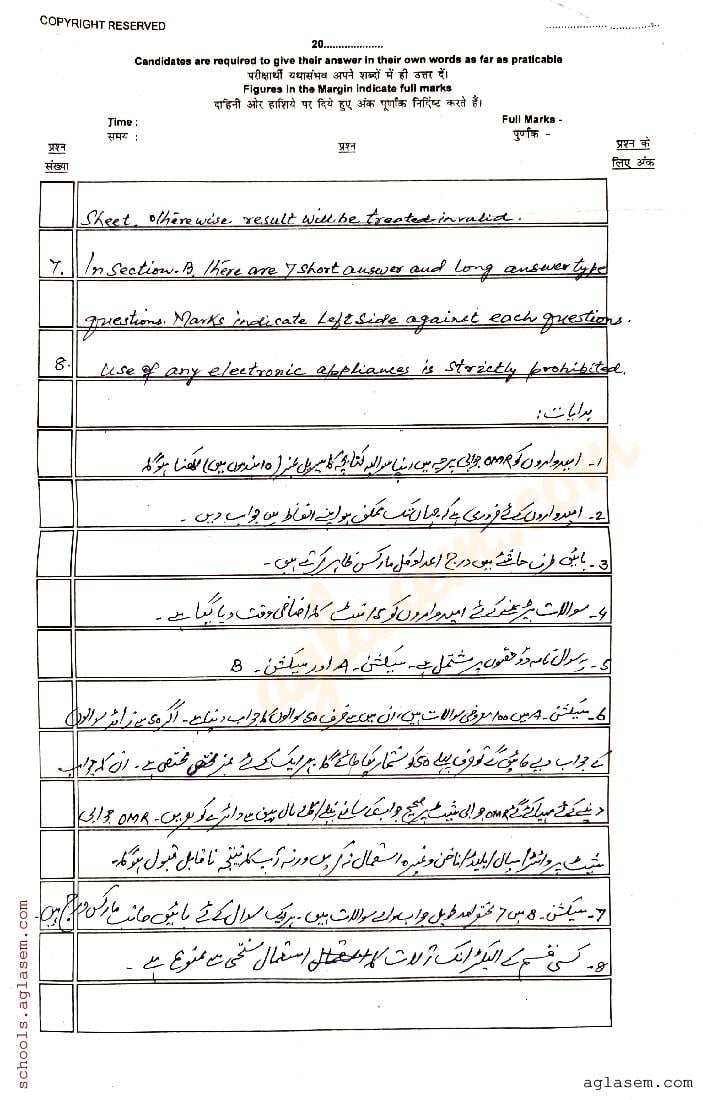 COPYRIGHT RESERVED
20...................
Candidates are required to give their answer in their own words as far as praticable
परीक्षार्थी यथासंभव अपने शब्दों में ही उत्तर दें।
Figures in the Margin indicate full marks
दाहिनी ओर हाशिये पर दिये हुए अंक पूर्णांक निर्दिष्ट करते हैं।
Time : Full Marks -
समय : पुर्णांक -
प्रश्न संख्या प्रश्न प्रश्न के लिए अंक
Sheet. Otherewise result will be treated invalid.
7. In Section-B, there are 7 short answer and long answer type
questions. Marks indicate Left side against each questions.
8. Use of any electronic appliances is strictly prohibited.
ہدایات :
1- امیدواروں کو OMR جوابی پرچہ میں اپنا سوالیہ کتابچہ کا سیریل نمبر (10 ہندسوں میں) لکھنا ہوگا۔
2- امیدواروں کے لئے ضروری ہے کہ جہاں تک ممکن ہو اپنے الفاظ میں جواب دیں۔
3- بائیں طرف حاشئے میں درج اعداد کل مارکس ظاہر کرتے ہیں۔
4- سوالات پڑھنے کے لئے امیدواروں کو 15 منٹ کا اضافی وقت دیا گیا ہے۔
5- یہ سوال نامہ دو حصوں پر مشتمل ہے۔ سیکشن-A اور سیکشن-B
6- سیکشن-A میں 100 معروضی سوالات ہیں، ان میں سے صرف 50 سوالوں کا جواب دینا ہے۔ اگر 50 سے زائد سوالوں
کے جواب دیے جائیں گے تو صرف پہلے 50 کو شمار کیا جائے گا۔ ہر ایک کے لئے 1 نمبر مختص ہے۔ ان کا جواب
دینے کے لئے مہیا کئے گئے OMR جوابی شیٹ پر صحیح جواب کے سامنے نیلے/کالے بال پین سے دائرے کو بھریں۔ OMR جوابی
شیٹ پر وائٹنر/سیال/بلیڈ/ناخن وغیرہ استعمال نہ کریں ورنہ آپ کا نتیجہ ناقابل قبول ہوگا۔
7- سیکشن-B میں 7 مختصر اور طویل جواب والے سوالات ہیں۔ ہر ایک سوال کے لئے بائیں جانب مارکس درج ہیں۔
8- کسی قسم کے الیکٹرانک آلات کا استعمال سختی سے ممنوع ہے۔
aglasem.com
schools.aglasem.com
aglasem.com